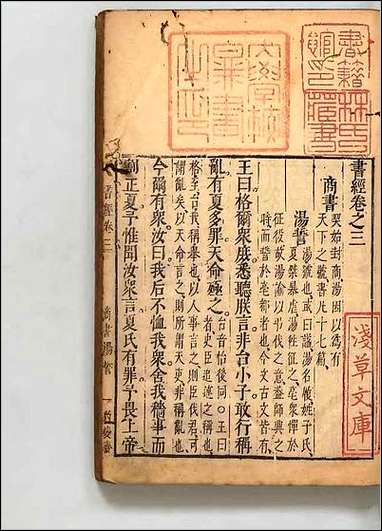 書籍館印
林氏藏書
大學校圖書之印
書經卷之三
商書 契始封商湯因以爲有
天下之號書凡十七篇
湯誓 湯號也或曰諡湯名履姓子氏
夏桀暴虐湯往征之亳衆憚於
征役故湯諭以弔伐之意蓋師興之
時而誓於亳都者也今文古文皆有
王曰格爾衆庶悉聽朕言非台小子敢行稱
亂有夏多罪天命殛之 台音怡後同○王曰
者史臣追述之稱也
格至台我稱舉也以人事言之則臣伐君可
謂亂矣以天命言之則所謂天吏非稱亂也
今爾有衆汝曰我后不恤我衆舍我穡事而
割正夏予惟聞汝衆言夏氏有罪予畏上帝
淺草文庫
書經卷三 商書 湯誓 一